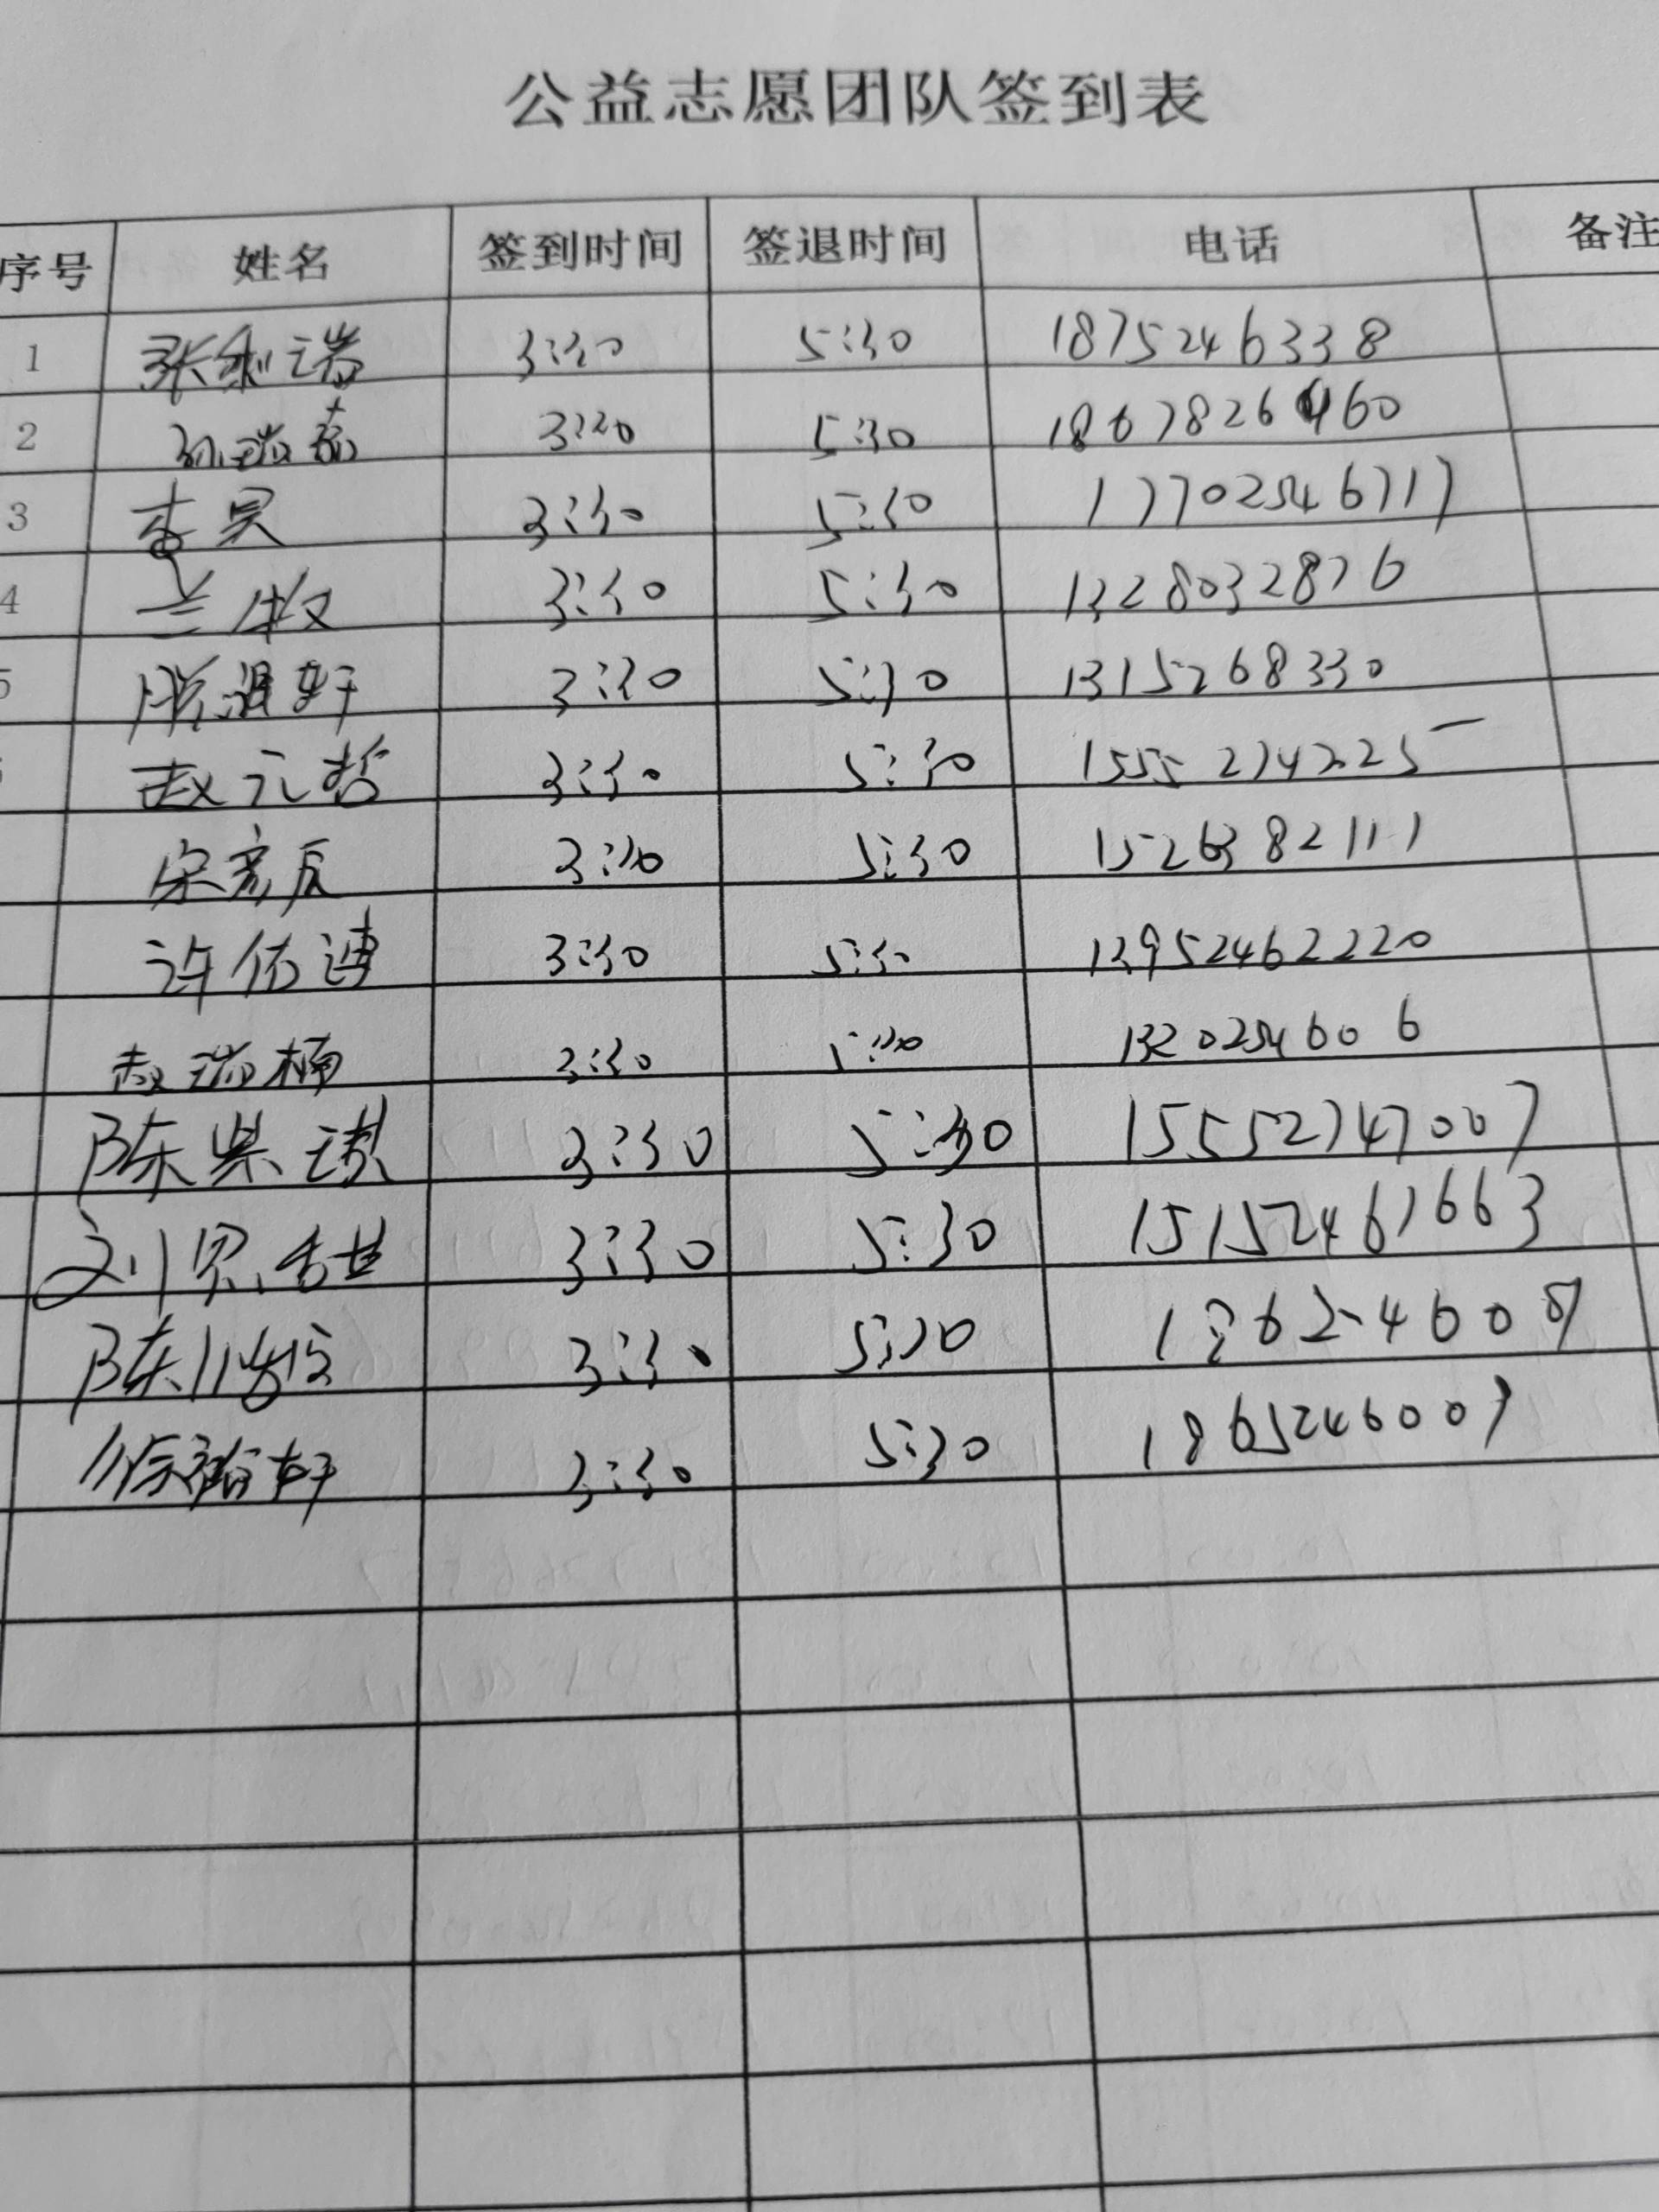 公益志愿团队签到表
序号 姓名 签到时间 签退时间 电话 备注
1 张 瑞 3:30 5:30 18752463338
2 孙瑞嘉 3:20 5:30 18678264460
3 李昊 3:30 5:30 17702546717
4 兰牧 3:30 5:30 1328032876
5 滕 轩 3:30 5:30 1315268330
赵元哲 3:30 5:30 15552742225
宋彦辰 3:30 5:30 1526382111
许依 3:30 5:30 13952462220
赵瑞楠 3:30 5:30 1320254606
陈 琪 3:30 5:30 15552747007
刘 3:30 5:30 15152461663
陈 3:30 5:30
徐 轩 3:30 5:30 1865246007